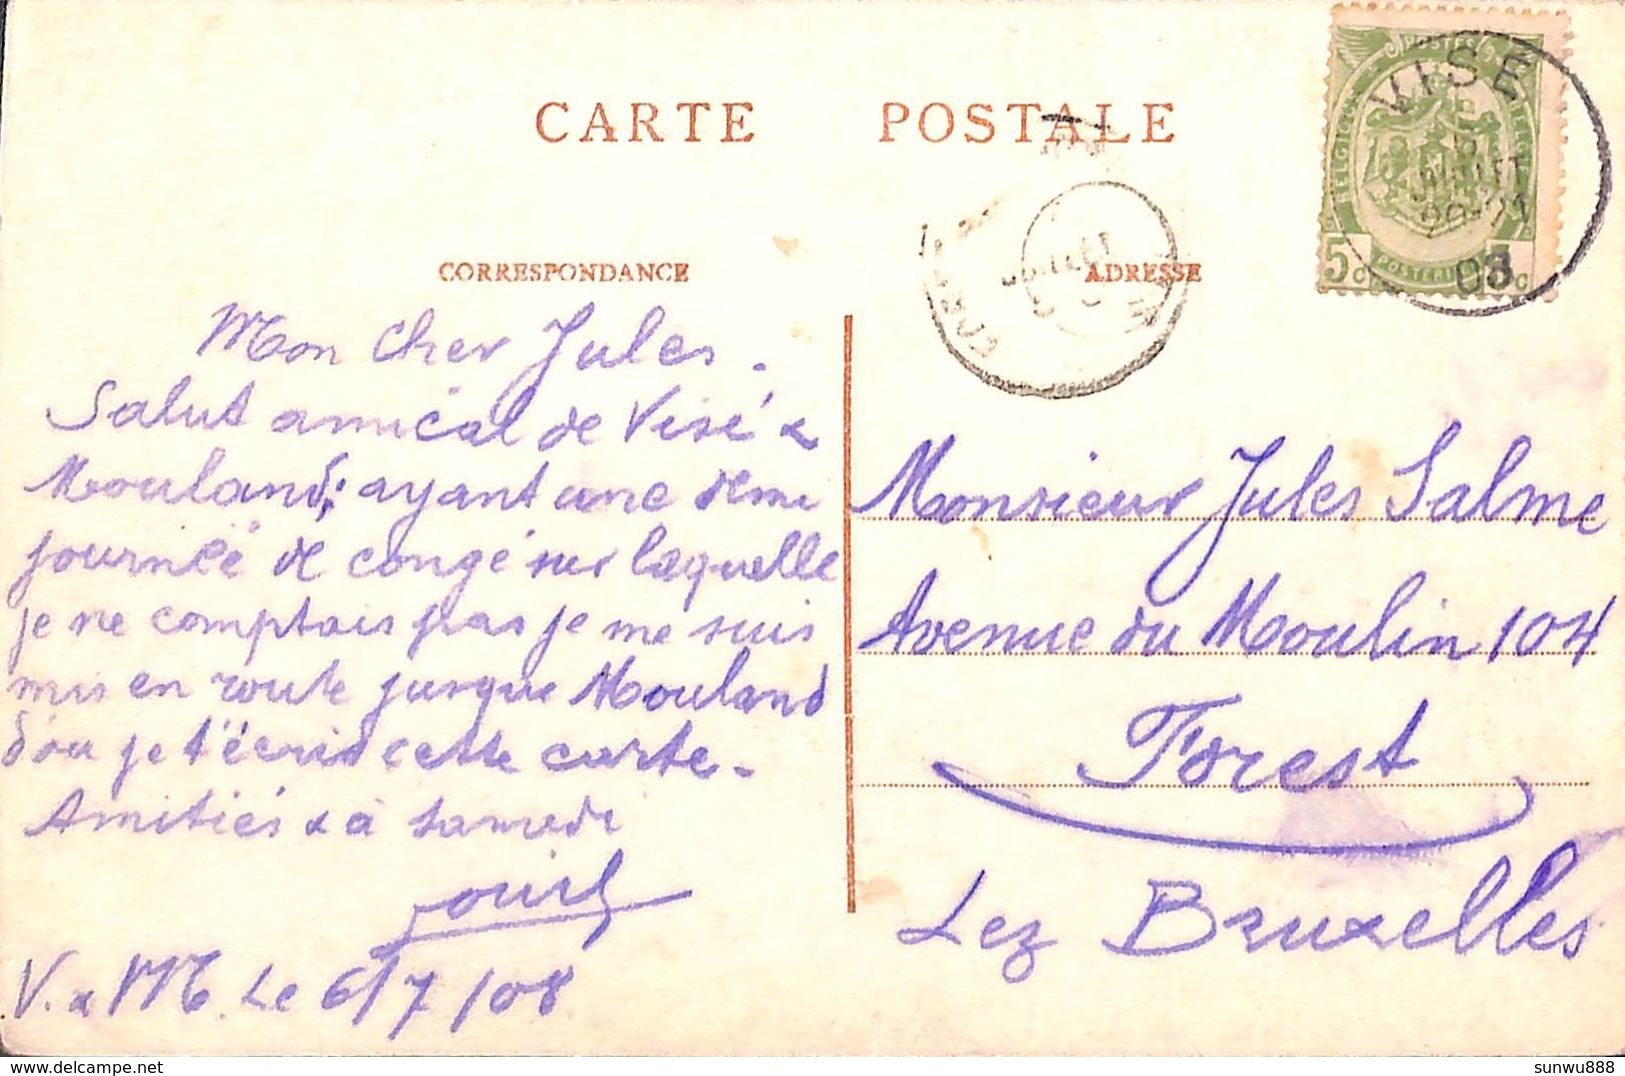 CARTE POSTALE
CORRESPONDANCE
ADRESSE
POSTES
BELGIQUE
5c
VISÉ
6
JUILLET
08
Mon Cher Jules.
Salut amical de Visé &
Mouland; ayant une demi
journée de congé sur laquelle
je ne comptais pas je me suis
mis en route jusque Mouland
d'ou je t'écris cette carte.
Amitiés & à samedi
V. & M. Le 6/7/08
Monsieur Jules Salme
Avenue du Moulin 104
Forest
Lez Bruxelles
delcampe.net
sunwu888